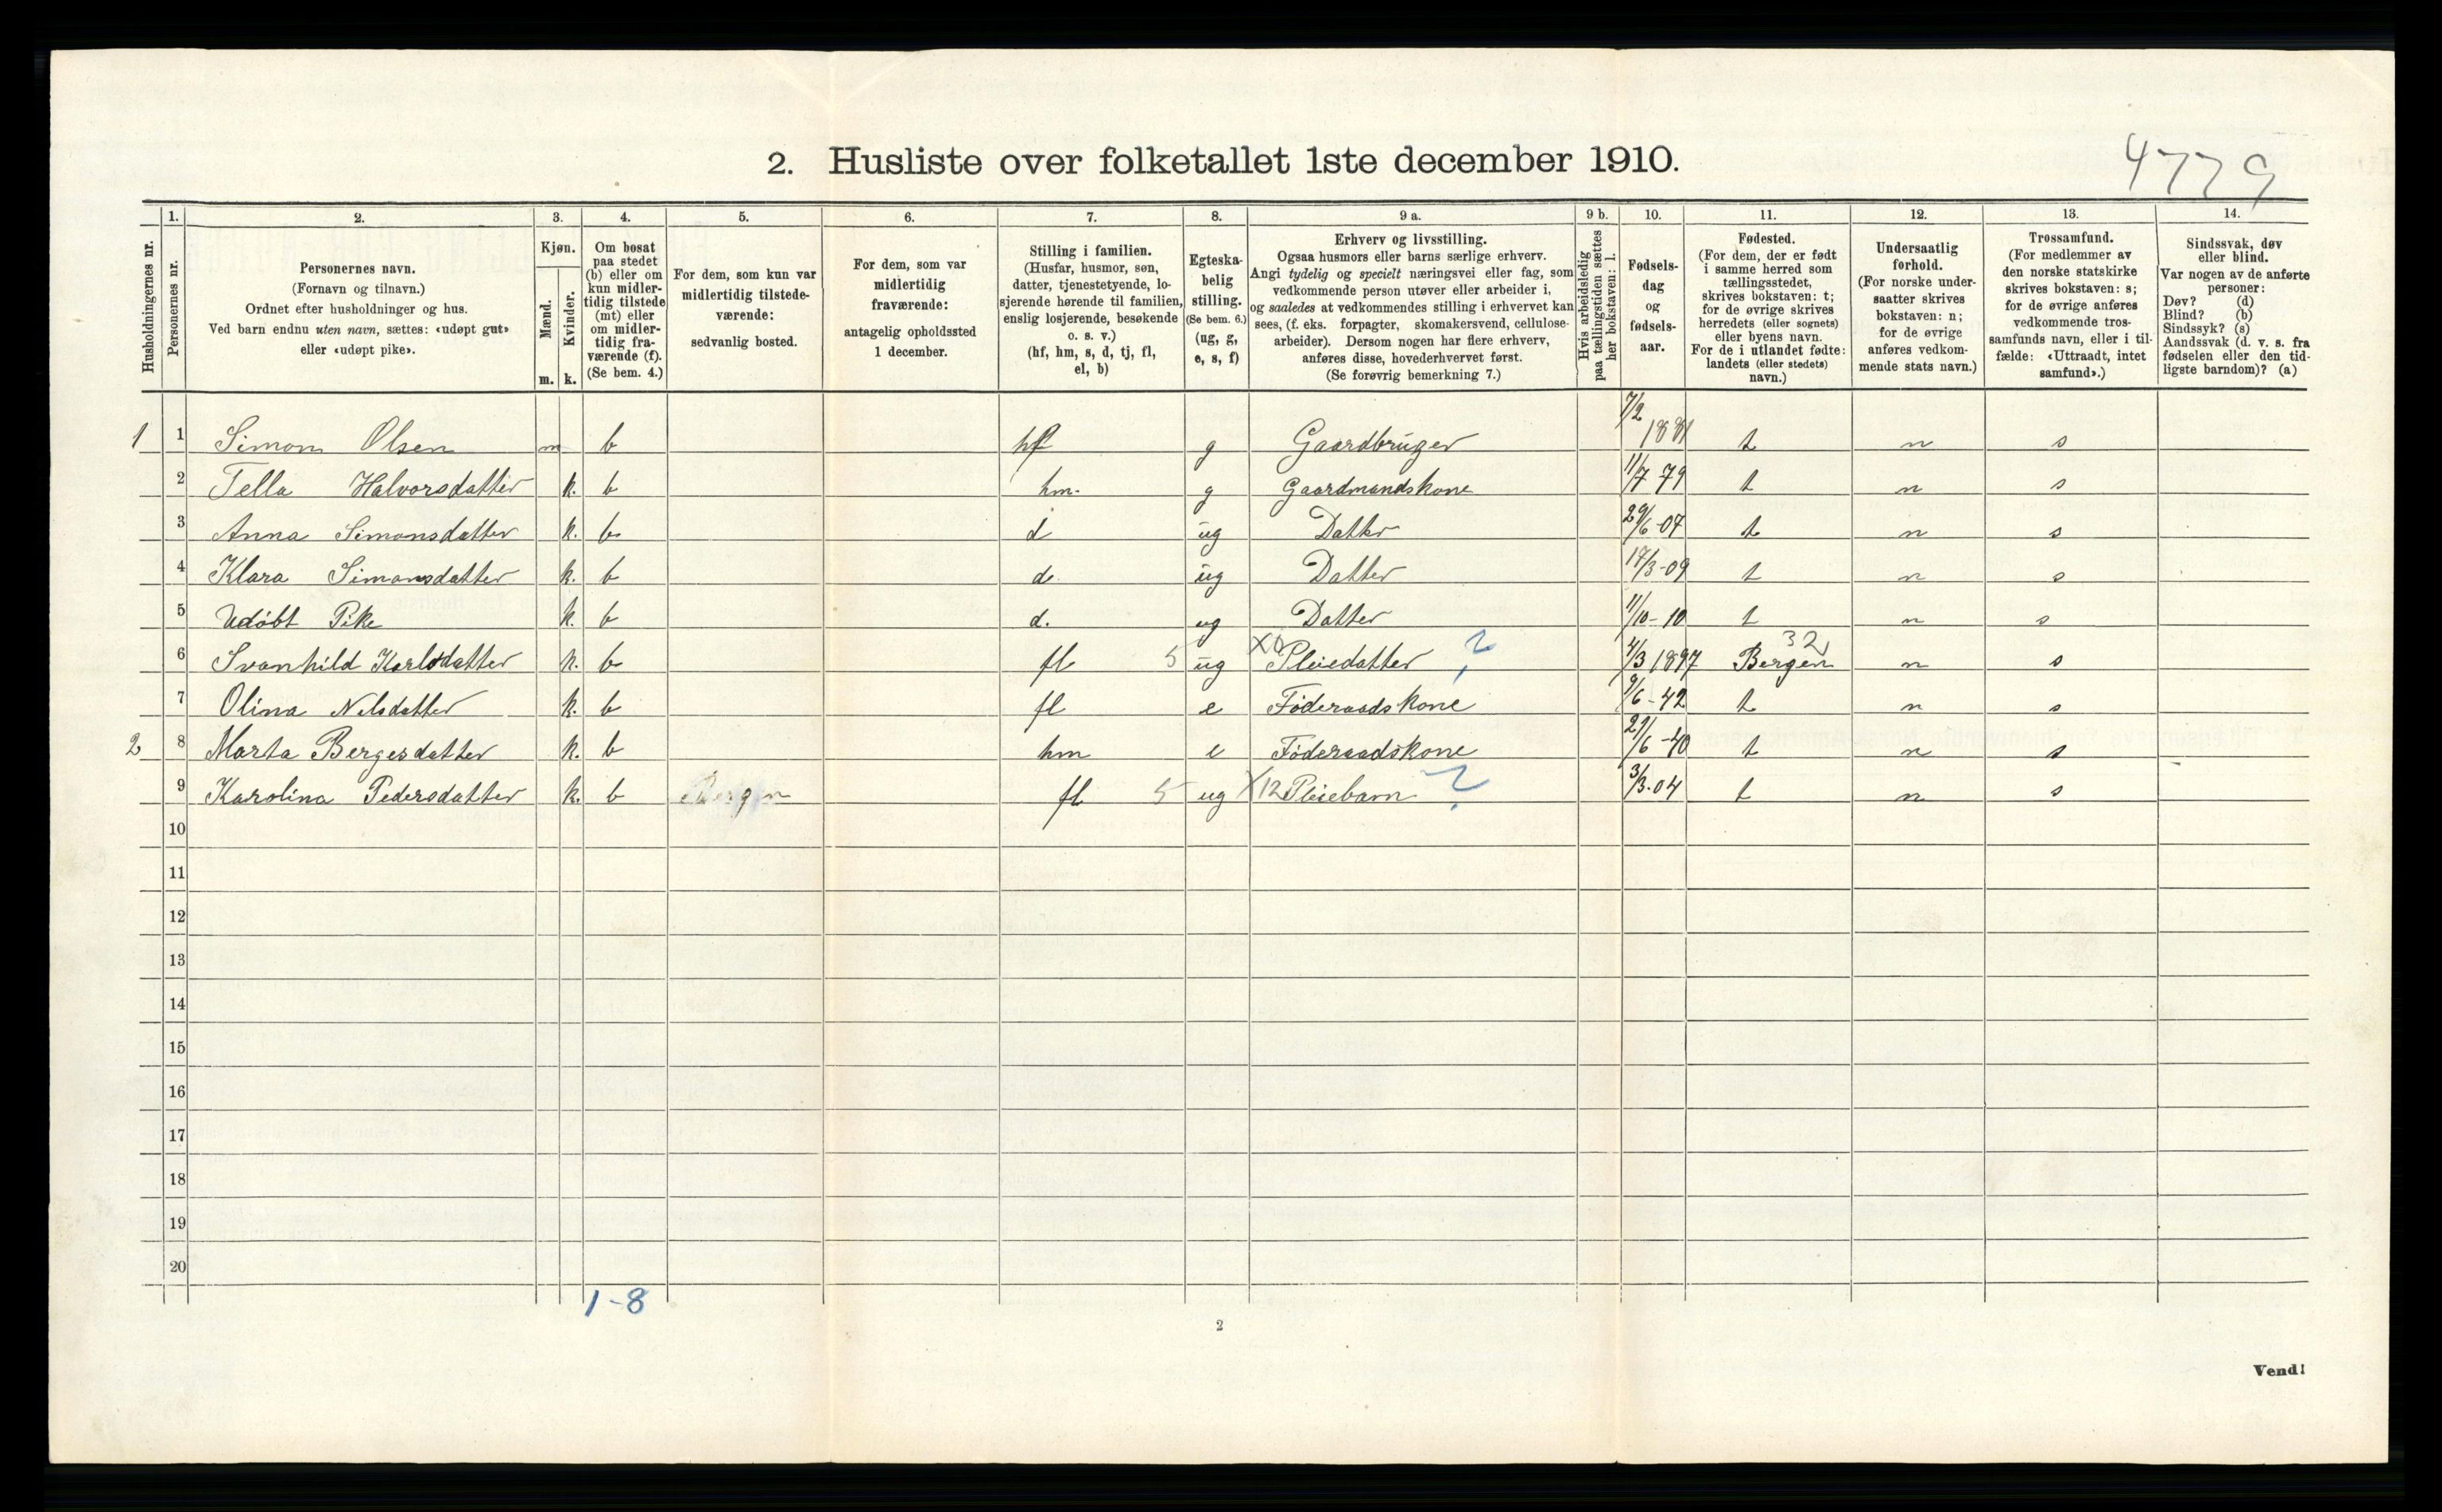 4779
2. Husliste over folketallet 1ste december 1910.
Husholdningernes nr.
1. Personernes nr.
2. Personernes navn. (Fornavn og tilnavn.) Ordnet efter husholdninger og hus. Ved barn endnu uten navn, sættes: «udøpt gut» eller «udøpt pike».
3. Kjøn. Mænd. m. Kvinder. k.
4. Om bosat paa stedet (b) eller om kun midler- tidig tilstede (mt) eller om midler- tidig fra- værende (f). (Se bem. 4.)
5. For dem, som kun var midlertidig tilstede- værende: sedvanlig bosted.
6. For dem, som var midlertidig fraværende: antagelig opholdssted 1 december.
7. Stilling i familien. (Husfar, husmor, søn, datter, tjenestetyende, lo- sjerende hørende til familien, enslig losjerende, besøkende o. s. v.) (hf, hm, s, d, tj, fl, el, b)
8. Egteska- belig stilling. (Se bem. 6.) (ug, g, e, s, f)
9 a. Erhverv og livsstilling. Ogsaa husmors eller barns særlige erhverv. Angi tydelig og specielt næringsvei eller fag, som vedkommende person utøver eller arbeider i, og saaledes at vedkommendes stilling i erhvervet kan sees, (f. eks. forpagter, skomakersvend, cellulose- arbeider). Dersom nogen har flere erhverv, anføres disse, hovederhvervet først. (Se forøvrig bemerkning 7.)
9 b. Hvis arbeidsledig paa tællingstiden sættes her bokstaven: l.
10. Fødsels- dag og fødsels- aar.
11. Fødested. (For dem, der er født i samme herred som tællingsstedet, skrives bokstaven: t; for de øvrige skrives herredets (eller sognets) eller byens navn. For de i utlandet fødte: landets (eller stedets) navn.)
12. Undersaatlig forhold. (For norske under- saatter skrives bokstaven: n; for de øvrige anføres vedkom- mende stats navn.)
13. Trossamfund. (For medlemmer av den norske statskirke skrives bokstaven: s; for de øvrige anføres vedkommende tros- samfunds navn, eller i til- fælde: «Uttraadt, intet samfund».)
14. Sindssvak, døv eller blind. Var nogen av de anførte personer: Døv? (d) Blind? (b) Sindssyk? (s) Aandssvak (d. v. s. fra fødselen eller den tid- ligste barndom)? (a)
1 1 Simon Olsen m b hf g Gaardbruger 7/2 1881 t n s
2 Tella Halvorsdatter k. b hm. g Gaardmandskone 11/7 79 t n s
3 Anna Simonsdatter k. b d ug Datter 29/6-07 t n s
4 Klara Simonsdatter k. b d. ug Datter 17/3-09 t n s
5 Udøbt Pike k. b d. ug Datter 11/10-10 t n s
6 Svanhild Karlsdatter k. b fl 5 ug X0 Pleiedatter ? 4/3 1897 Bergen 32 n s
7 Olina Nelsdatter k. b fl e Føderaadskone 9/6-42 t n s
2 8 Marta Bergesdatter k. b hm e Føderaadskone 29/6-40 t n s
9 Karolina Pedersdatter k. b Bergen fl 5 ug X12 Pleiebarn ? 3/3-04 t n s
10
11
12
13
14
15
16
17
18
19
20
1-8
2
Vend!